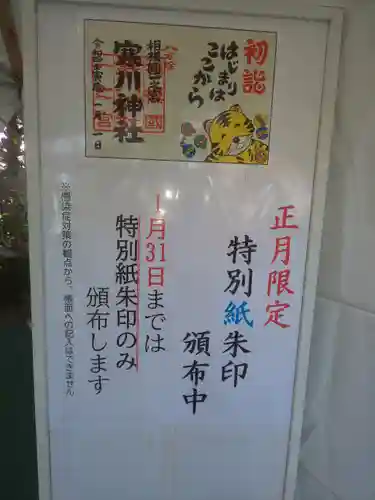 初詣
はじまりは
ここから
八方除
相模國一之宮
寒川神社
令和壬寅歳一月一日
正月限定
特別紙朱印
頒布中
1月31日までは
特別紙朱印のみ
頒布します
※感染症対策の観点から、帳面への記入はできません